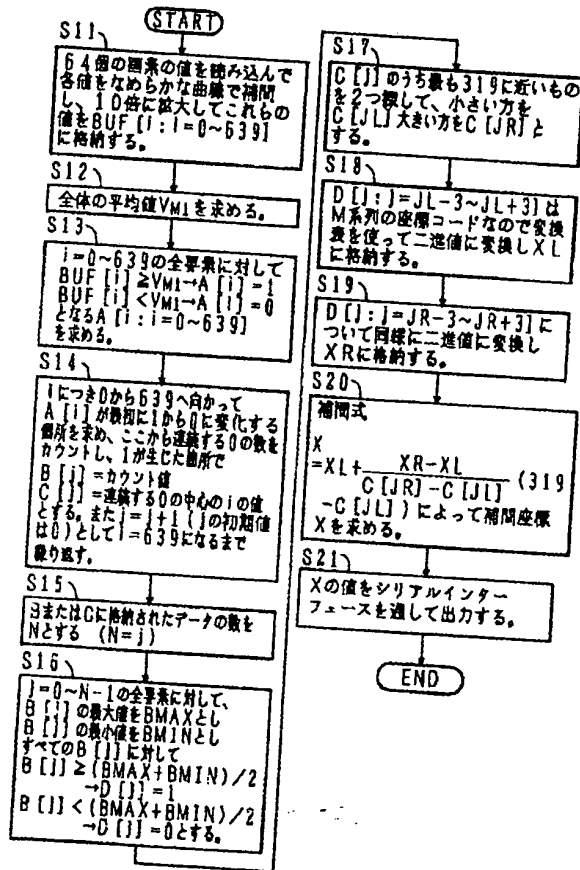 START
S11
64個の画素の値を読み込んで
各値をなめらかな曲線で補間
し、10倍に拡大してこれらの
値をBUF [i:i=0~639]
に格納する。
S12
全体の平均値VM1を求める。
S13
i=0~639の全要素に対して
BUF [i] ≧VM1→A [i] =1
BUF [i] <VM1→A [i] =0
となるA [i:i=0~639]
を求める。
S14
iにつき0から639へ向かって
A [i] が最初に1から0に変化する
個所を求め、ここから連続する0の数を
カウントし、1が生じた箇所で
B [j] =カウント値
C [j] =連続する0の中心のiの値
とする。またj=j+1 (jの初期値
は0) としてi=639になるまで
繰り返す。
S15
BまたはCに格納されたデータの数を
Nとする (N=j)
S16
j=0~N-1の全要素に対して、
B [j] の最大値をBMAXとし
B [j] の最小値をBMINとし
すべてのB [j] に対して
B [j] ≧ (BMAX+BMIN) /2
→D [j] =1
B [j] < (BMAX+BMIN) /2
→D [j] =0とする。
S17
C [J] のうち最も319に近いもの
を2つ探して、小さい方を
C [JL] 大きい方をC [JR] と
する。
S18
D [J:J=JL-3~JL+3] は
M系列の座標コードなので変換
表を使って二進値に変換しXL
に格納する。
S19
D [J:J=JR-3~JR+3] に
ついて同様に二進値に変換し
XRに格納する。
S20
補間式
X
=XL+ XR-XL / C [JR] -C [JL] (319
-C [JL] ) によって補間座標
Xを求める。
S21
Xの値をシリアルインター
フェースを通して出力する。
END